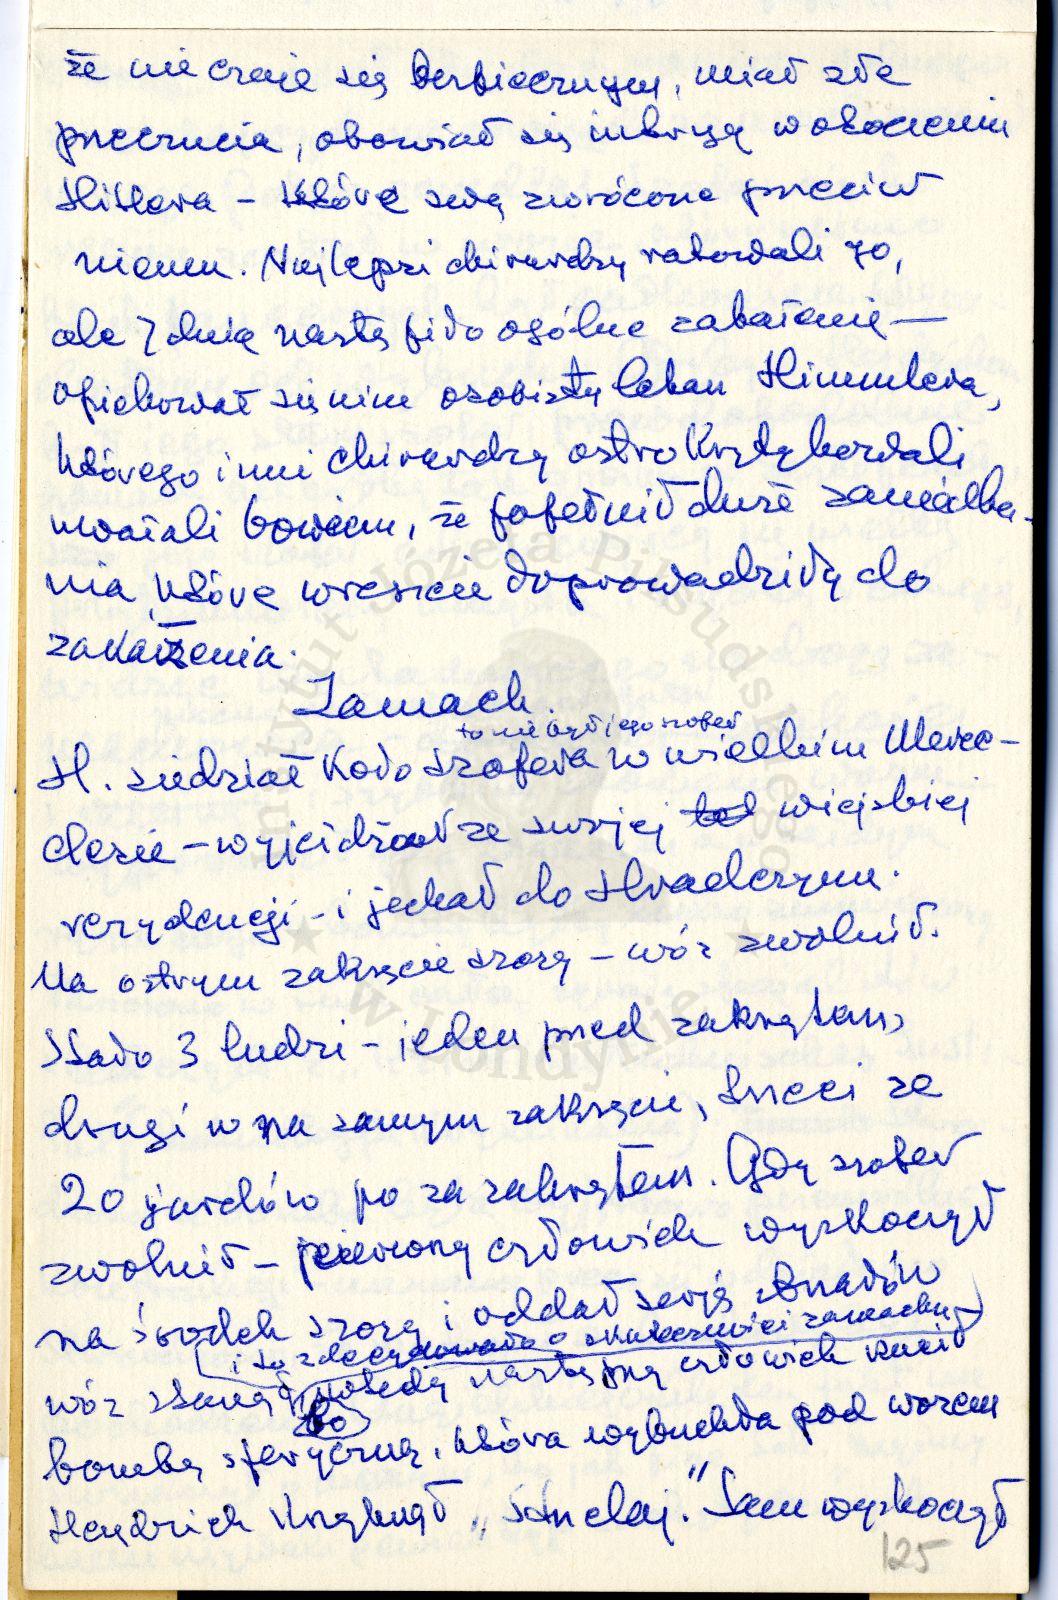 że nie czuje się bezpiecznym, miał złe
przeczucia, obawiał się intryg w otoczeniu
Hitlera – które są zwrócone przeciw
niemu. Najlepsi chirurdzy ratowali go,
ale 7 dnia nastąpiło ogólne zakażenie —
opiekował się nim osobisty lekarz Himmlera,
którego inni chirurdzy ostro krytykowali
uważali bowiem, że popełnił duże zaniedba-
nia, które wreszcie doprowadziły do
zakażenia.
Zamach.
to nie był jego szofer
H. siedział koło szofera w wielkim Merce-
desie – wyjeżdżał ze swojej wiejskiej
rezydencji – i jechał do Hradczyna.
Na ostrym zakręcie szosy – wóz zwolnił.
Stało 3 ludzi – jeden przed zakrętem,
drugi w na samym zakręcie, trzeci ze
20 yardów po za zakrętem. Gdy szofer
zwolnił – pierwszy człowiek wyskoczył
na środek szosy i oddał serię strzałów
i to zdecydowało o skuteczności zamachu
wóz stanął, wtedy następny człowiek rzucił
bo
bombę sferyczną, która wybuchła pod wozem
Heydrich krzyknął „Strzelaj." Sam wyskoczył
125
Instytut Józefa Piłsudskiego
w Londynie